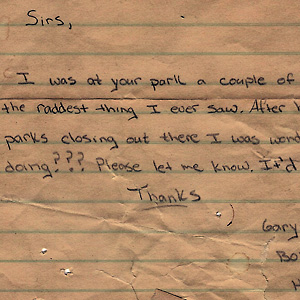 Sirs,
I was at your park a couple of
the raddest thing I ever saw. After
parks closing out there I was
doing??? Please let me know. It'd
Thanks
Gary